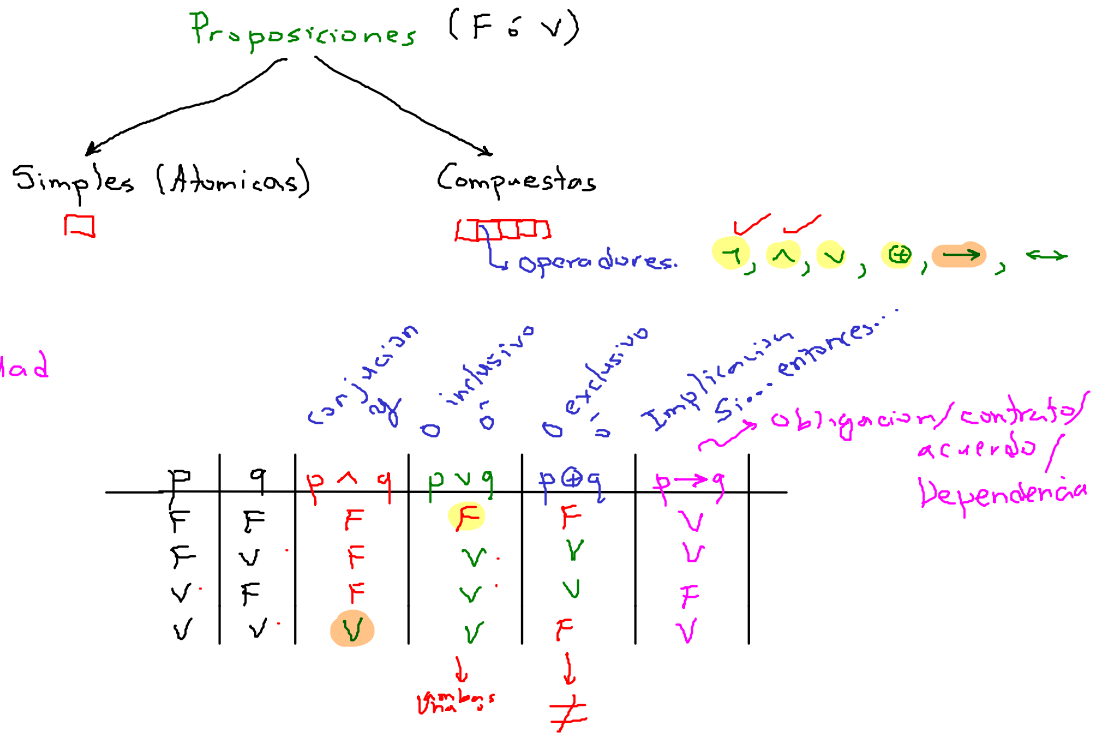 Proposiciones (F ó V)
Simples (Atomicas)
Compuestas
operadores.
¬, ∧, ∨, ⊕, →, ↔
dad
conjucion y
o inclusivo ó
o exclusivo ó
Implicación Si... entonces...
obligacion/contrato/
acuerdo/
Dependencia
p q p ∧ q p ∨ q p ⊕ q p → q
F F F F F V
F V F V V V
V F F V V F
V V V V F V
ambas
Una
≠